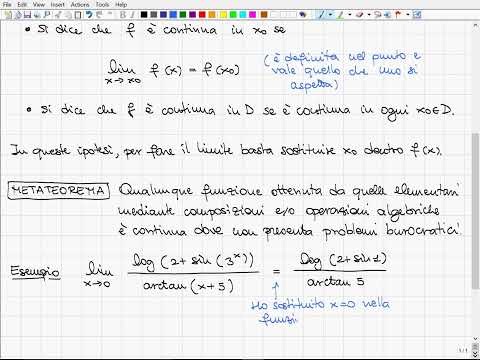 File Edit View Insert Actions Tools Help
• Si dice che f è continua in x₀ se
lim f(x) = f(x₀)
x→x₀
(è definita nel punto e
vale quello che uno si
aspetta)
• Si dice che f è continua in D se è continua in ogni x₀∈D.
In queste ipotesi, per fare il limite basta sostituire x₀ dentro f(x).
METATEOREMA Qualunque funzione ottenuta da quelle elementari
mediante composizioni e/o operazioni algebriche
è continua dove non presenta problemi burocratici.
Esempio lim log(2+sin(3ˣ)) / arctan(x+5) = log(2+sin1) / arctan5
x→0
Ho sostituito x=0 nella
funzi
1 / 1